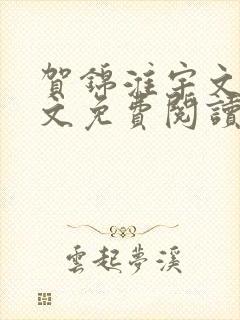 賀錦淮宋文
文免費閱讀
雲起夢溪